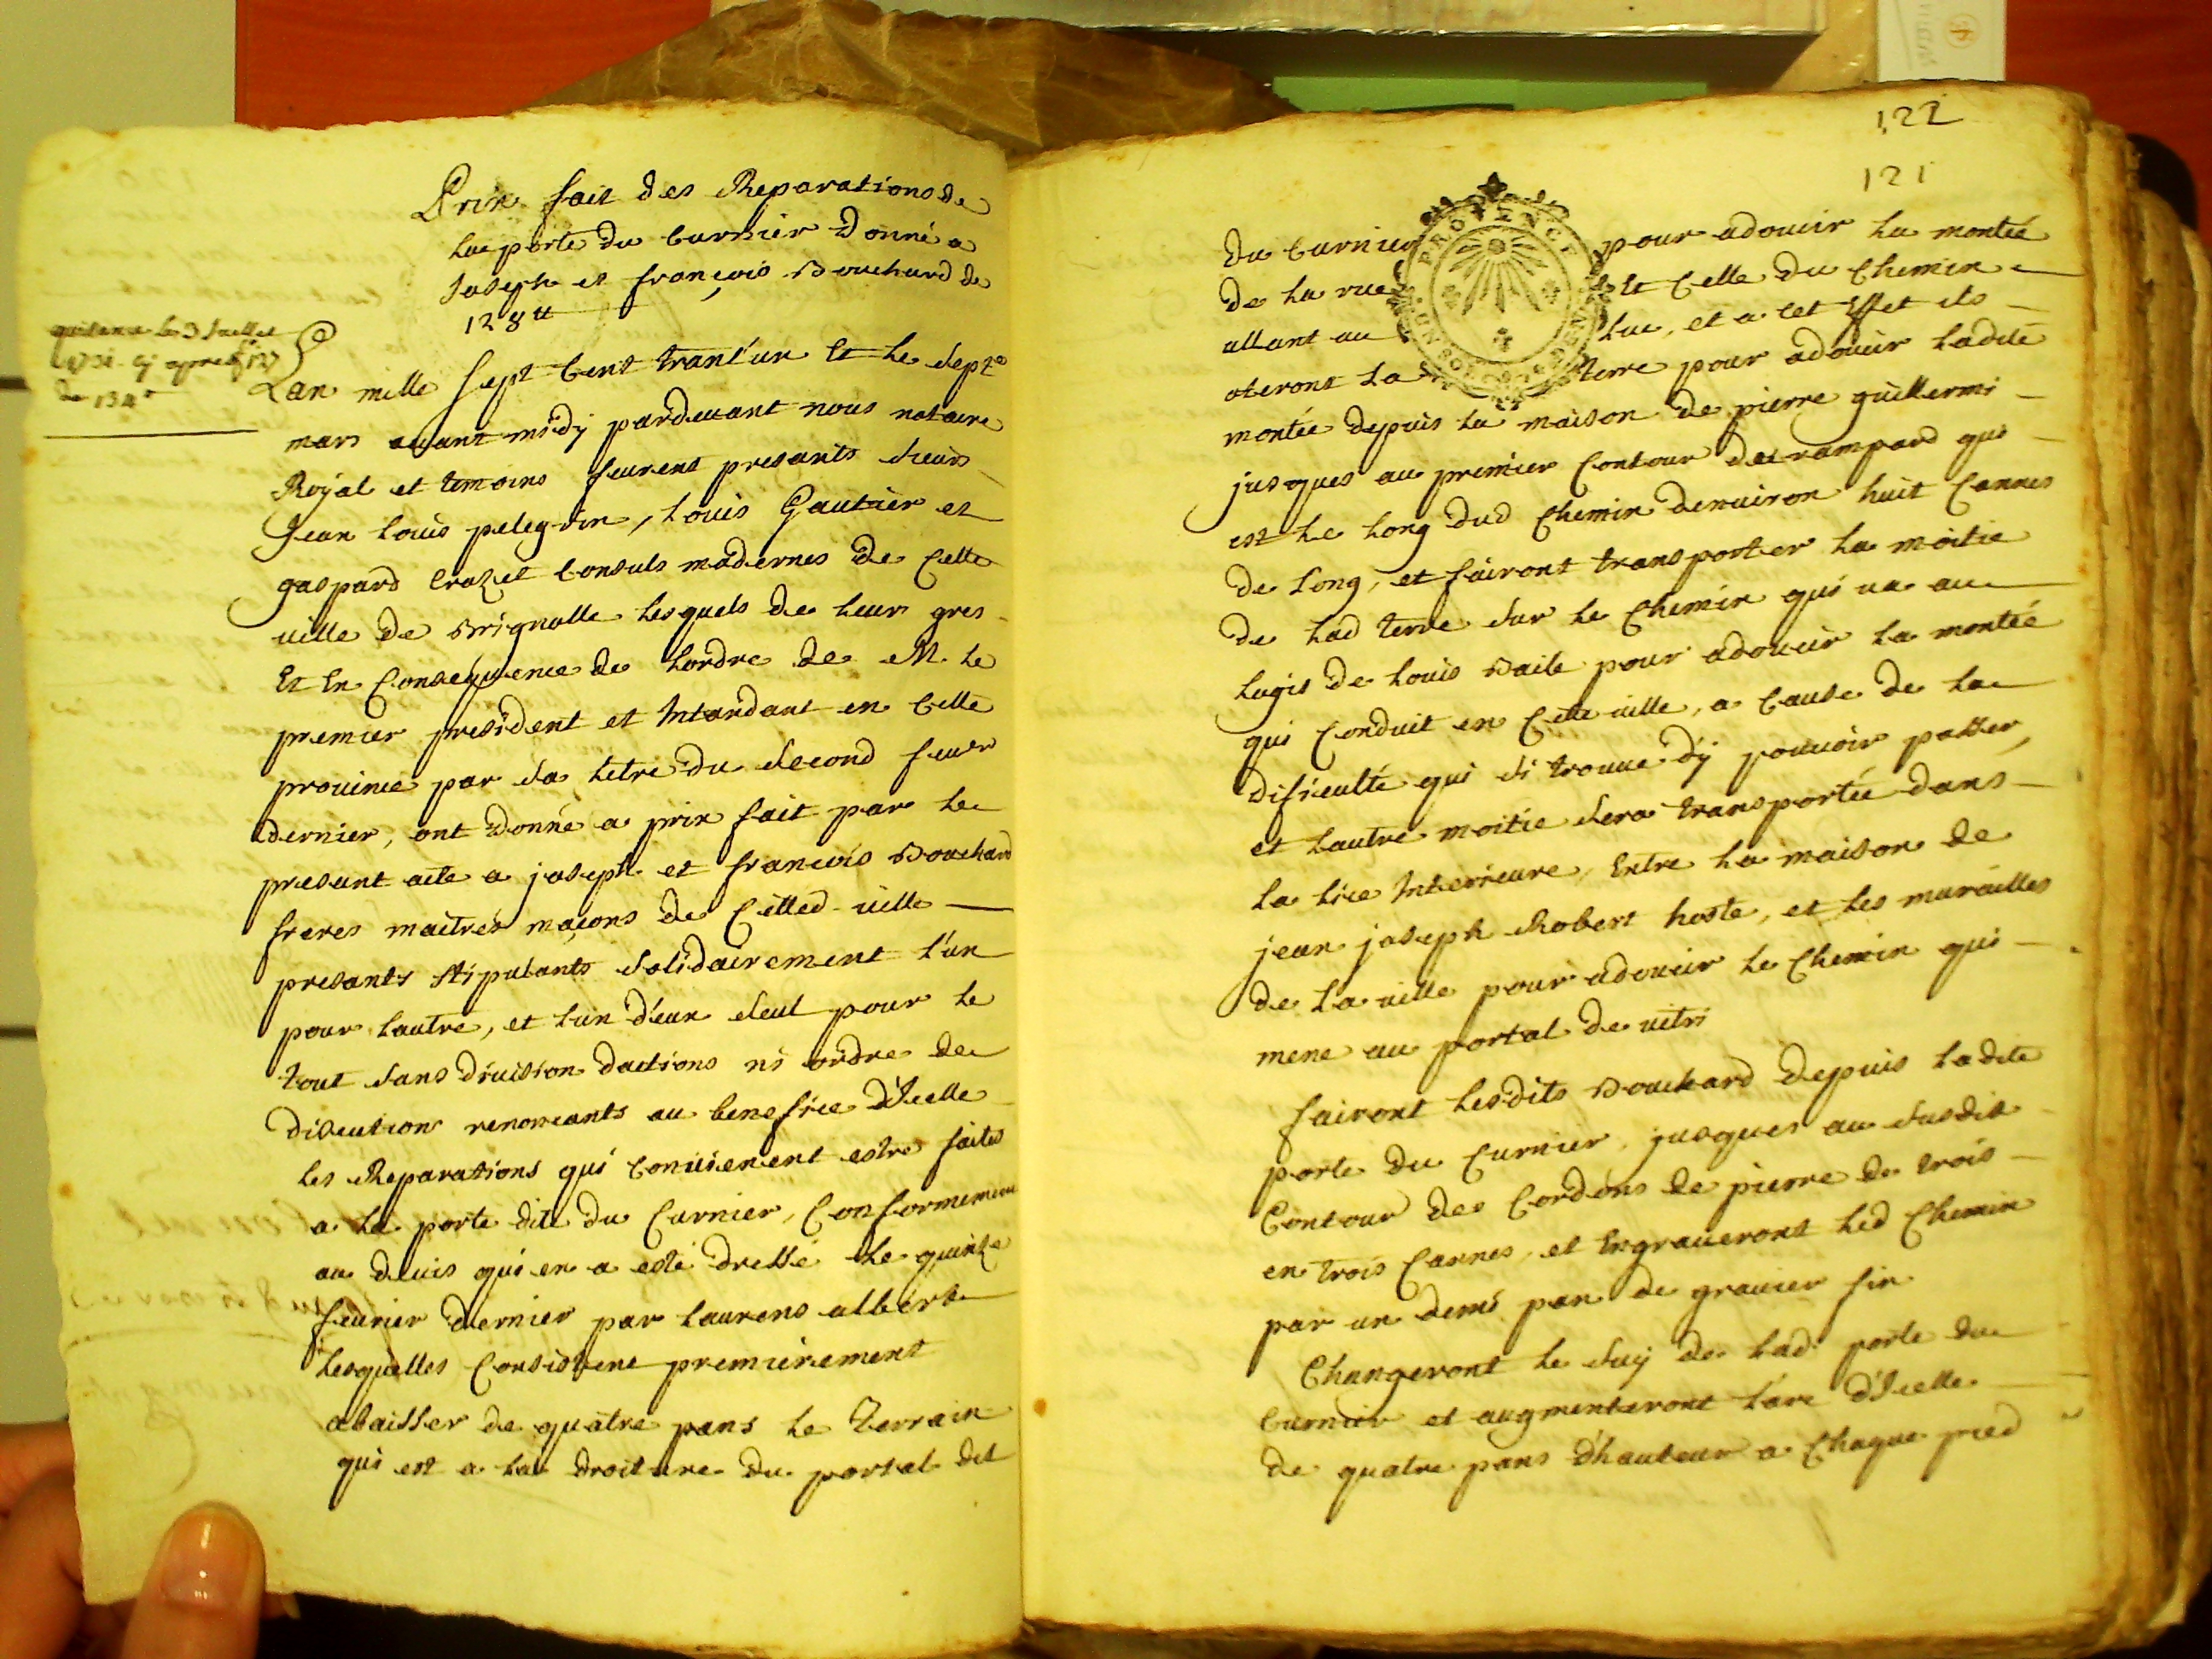 Prix fait des Reparations de
la porte du Curnier donné a
Joseph et françois Bouchard de
128 ₶
quitance le 3 Juillet
1731 cy apres f° 127
de 134 ₶
Lan mille sept cent trant'un Et le sept.e
mars avant midy pardevant nous notaire
Royal et temoins feurent presants sieurs
Jean Louis pelegrin, Louis Gautier et
gaspard Crozet Consuls modernes de Cette
ville de Brignolle lesquels de leur gres
Et En Consequence de Lordre de M. le
premier president et Intandant en Cette
province par sa letre du second fevr
dernier, ont donné a prix fait par le
presant acte a joseph et françois Bouchard
freres maitres maçons de Cetted. ville
presants stipulants solidairement l'un
pour lautre, et lun d'eux seul pour le
tout sans division dactions ni ordre de
discution renonceants au benefice d'Icelle
les Reparations qui Convienent estre faites
a la porte dite du Curnier, Conformement
au devis qui en a esté dressé le quinze
fevrier dernier par Laurens albert
lesquelles Consistent premierement
abaisser de quatre pans le Terrain
qui est a la droiture du portal dit
122
121
PROVENCE
du Curnier pour adoucir la montée
de la rue Et Celle du Chemin
allant au Luc, et a Cet Effet ils
oteront la terre pour adoucir ladite
montée depuis la maison de pierre guillermi
jusques au premier Contour du rampard qui
est le long dud Chemin denviron huit Cannes
de Long, et fairont transporter la moitie
de Lad terre sur le Chemin qui va au
Logis de Louis Baile pour adoucir la montée
qui Conduit en Cette ville, a Cause de la
dificulté qui si trouve d'y pouvoir passer,
et lautre moitie sera transportée dans
la lice Interieure, Entre la maison de
jean joseph Robert hoste, et les murailles
de la ville pour adoucir le Chemin qui
mene au portal de vitri
fairont lesdits Bouchard depuis ladite
porte du Curnier jusques au susdit
Contour des Cordons de pierre de trois
en trois Cannes, et Engraveront led Chemin
par un demi pan de gravier fin
Changeront le suij de lad. porte du
Curnier et augmenteront l'arc d'Icelle
de quatre pans d'hauteur a Chaque pied